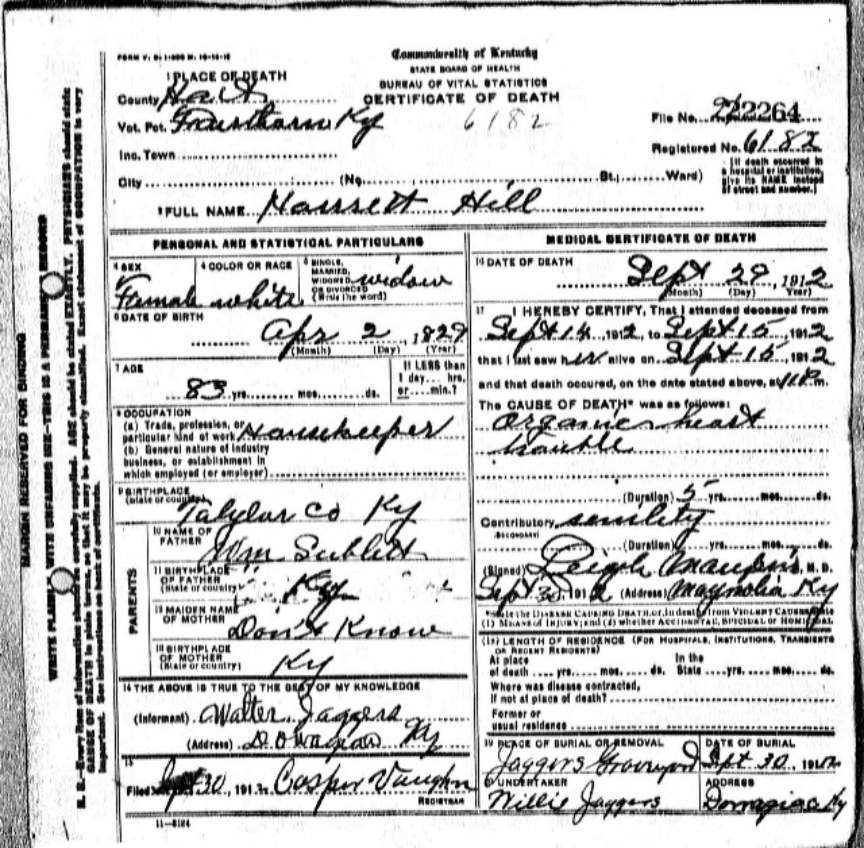 FORM V. S.
Commonwealth of Kentucky
STATE BOARD OF HEALTH
BUREAU OF VITAL STATISTICS
CERTIFICATE OF DEATH
1 PLACE OF DEATH
County Hart
Vot. Pct. Ky
6182
File No. 22264
Registered No. 6182
Inc. Town
City (No. St.; Ward)
[If death occurred in
a hospital or institution,
give its NAME instead
of street and number.]
2 FULL NAME Harrsett Hill
PERSONAL AND STATISTICAL PARTICULARS
3 SEX
Female
4 COLOR OR RACE
white
5 SINGLE,
MARRIED,
WIDOWED
OR DIVORCED
(Write the word)
widow
6 DATE OF BIRTH
Apr 2, 1829
(Month) (Day) (Year)
7 AGE
83 yrs. mos. ds.
If LESS than
1 day.... hrs,
or.....min.?
8 OCCUPATION
(a) Trade, profession, or
particular kind of work Housekeeper
(b) General nature of industry
business, or establishment in
which employed (or employer)
9 BIRTHPLACE
(State or country)
Talylar Co Ky
PARENTS
10 NAME OF
FATHER
Wm Sublett
11 BIRTHPLACE
OF FATHER
(State or country)
Ky
12 MAIDEN NAME
OF MOTHER
Don't Know
13 BIRTHPLACE
OF MOTHER
(State or country)
Ky
14 THE ABOVE IS TRUE TO THE BEST OF MY KNOWLEDGE
(Informant) Walter Jaggers
(Address) Ky
15
Filed Sept 30, 191 2 Casper Vaughn
REGISTRAR
11—8184
MEDICAL CERTIFICATE OF DEATH
16 DATE OF DEATH
Sept 29 1912
(Month) (Day) Year)
17 I HEREBY CERTIFY, That I attended deceased from
Sept 14 1912, to Sept 15, 1912
that I last saw her alive on Sept 15, 1912
and that death occured, on the date stated above, at 11 P.m.
The CAUSE OF DEATH* was as follows:
organic heart
trouble
(Duration) 5 yrs. mos. ds.
Contributory senility
SECONDARY
(Duration) yrs. mos. ds.
(Signed) Leigh Maupin, M. D.
Sept 30 1912 (Address) Magnolia Ky
*State the DISEASE CAUSING DEATH, or, in deaths from VIOLENT CAUSES state
(1) MEANS OF INJURY; and (2) whether ACCIDENTAL, SUICIDAL OR HOMICIDAL
(18) LENGTH OF RESIDENCE (FOR HOSPITALS, INSTITUTIONS, TRANSIENTS
OR RECENT RESIDENTS)
At place In the
of death yrs. mos. ds. State yrs. mos. ds.
Where was disease contracted,
if not at place of death?
Former or
usual residence
19 PLACE OF BURIAL OR REMOVAL
Jaggers Graveyard
DATE OF BURIAL
Sept 30, 1912
20 UNDERTAKER
Willie Jaggers
ADDRESS
Ky
MARGIN RESERVED FOR BINDING
WRITE PLAINLY WITH UNFADING INK—THIS IS A PERMANENT RECORD
N. B.—Every item of information should be carefully supplied. AGE should be stated EXACTLY. PHYSICIANS should state
CAUSE OF DEATH in plain terms, so that it may be properly classified. Exact statement of OCCUPATION is very
important. See instructions on back of certificate.